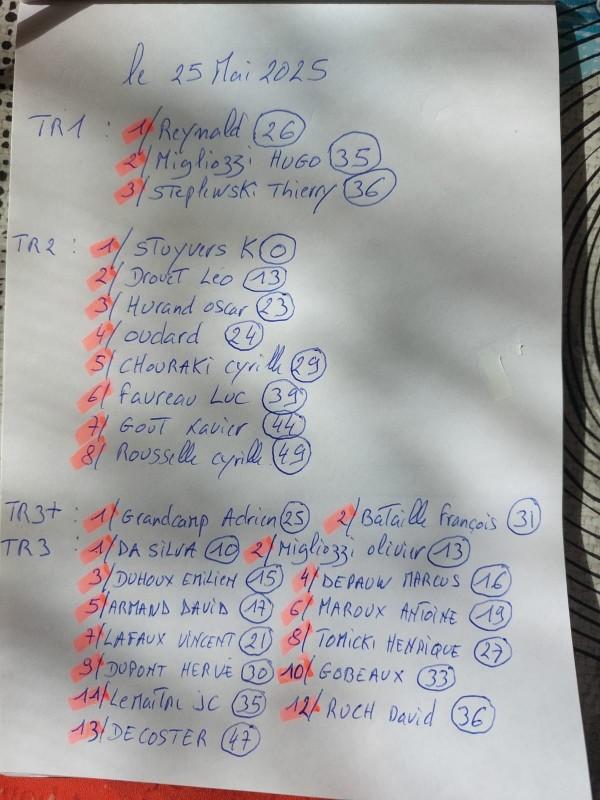 le 25 Mai 2025
TR1 : 1/ Reynald 26
2/ Migliozzi HUGO 35
3/ Steplewski Thierry 36
TR2 : 1/ Stuyvers K 0
2/ Drouet Léo 13
3/ Hurand oscar 23
4/ oudard 24
5/ CHOURAKI cyrille 29
6/ Favreau Luc 39
7/ Goût Xavier 44
8/ Rousselle cyrille 49
TR3+ : 1/ Grandcamp Adrien 25 2/ Bataille François 31
TR3 : 1/ DA SILVA 10 2/ Migliozzi olivier 13
3/ DUHOUX EMILIEN 15 4/ DEPAUW MARCUS 16
5/ ARMAND DAVID 17 6/ MAROUX ANTOINE 19
7/ LAFAUX VINCENT 21 8/ TOMICKI HENRIQUE 27
9/ DUPONT HERVÉ 30 10/ GOBEAUX 33
11/ LeMaître JC 35 12/ RUCH David 36
13/ DECOSTER 47